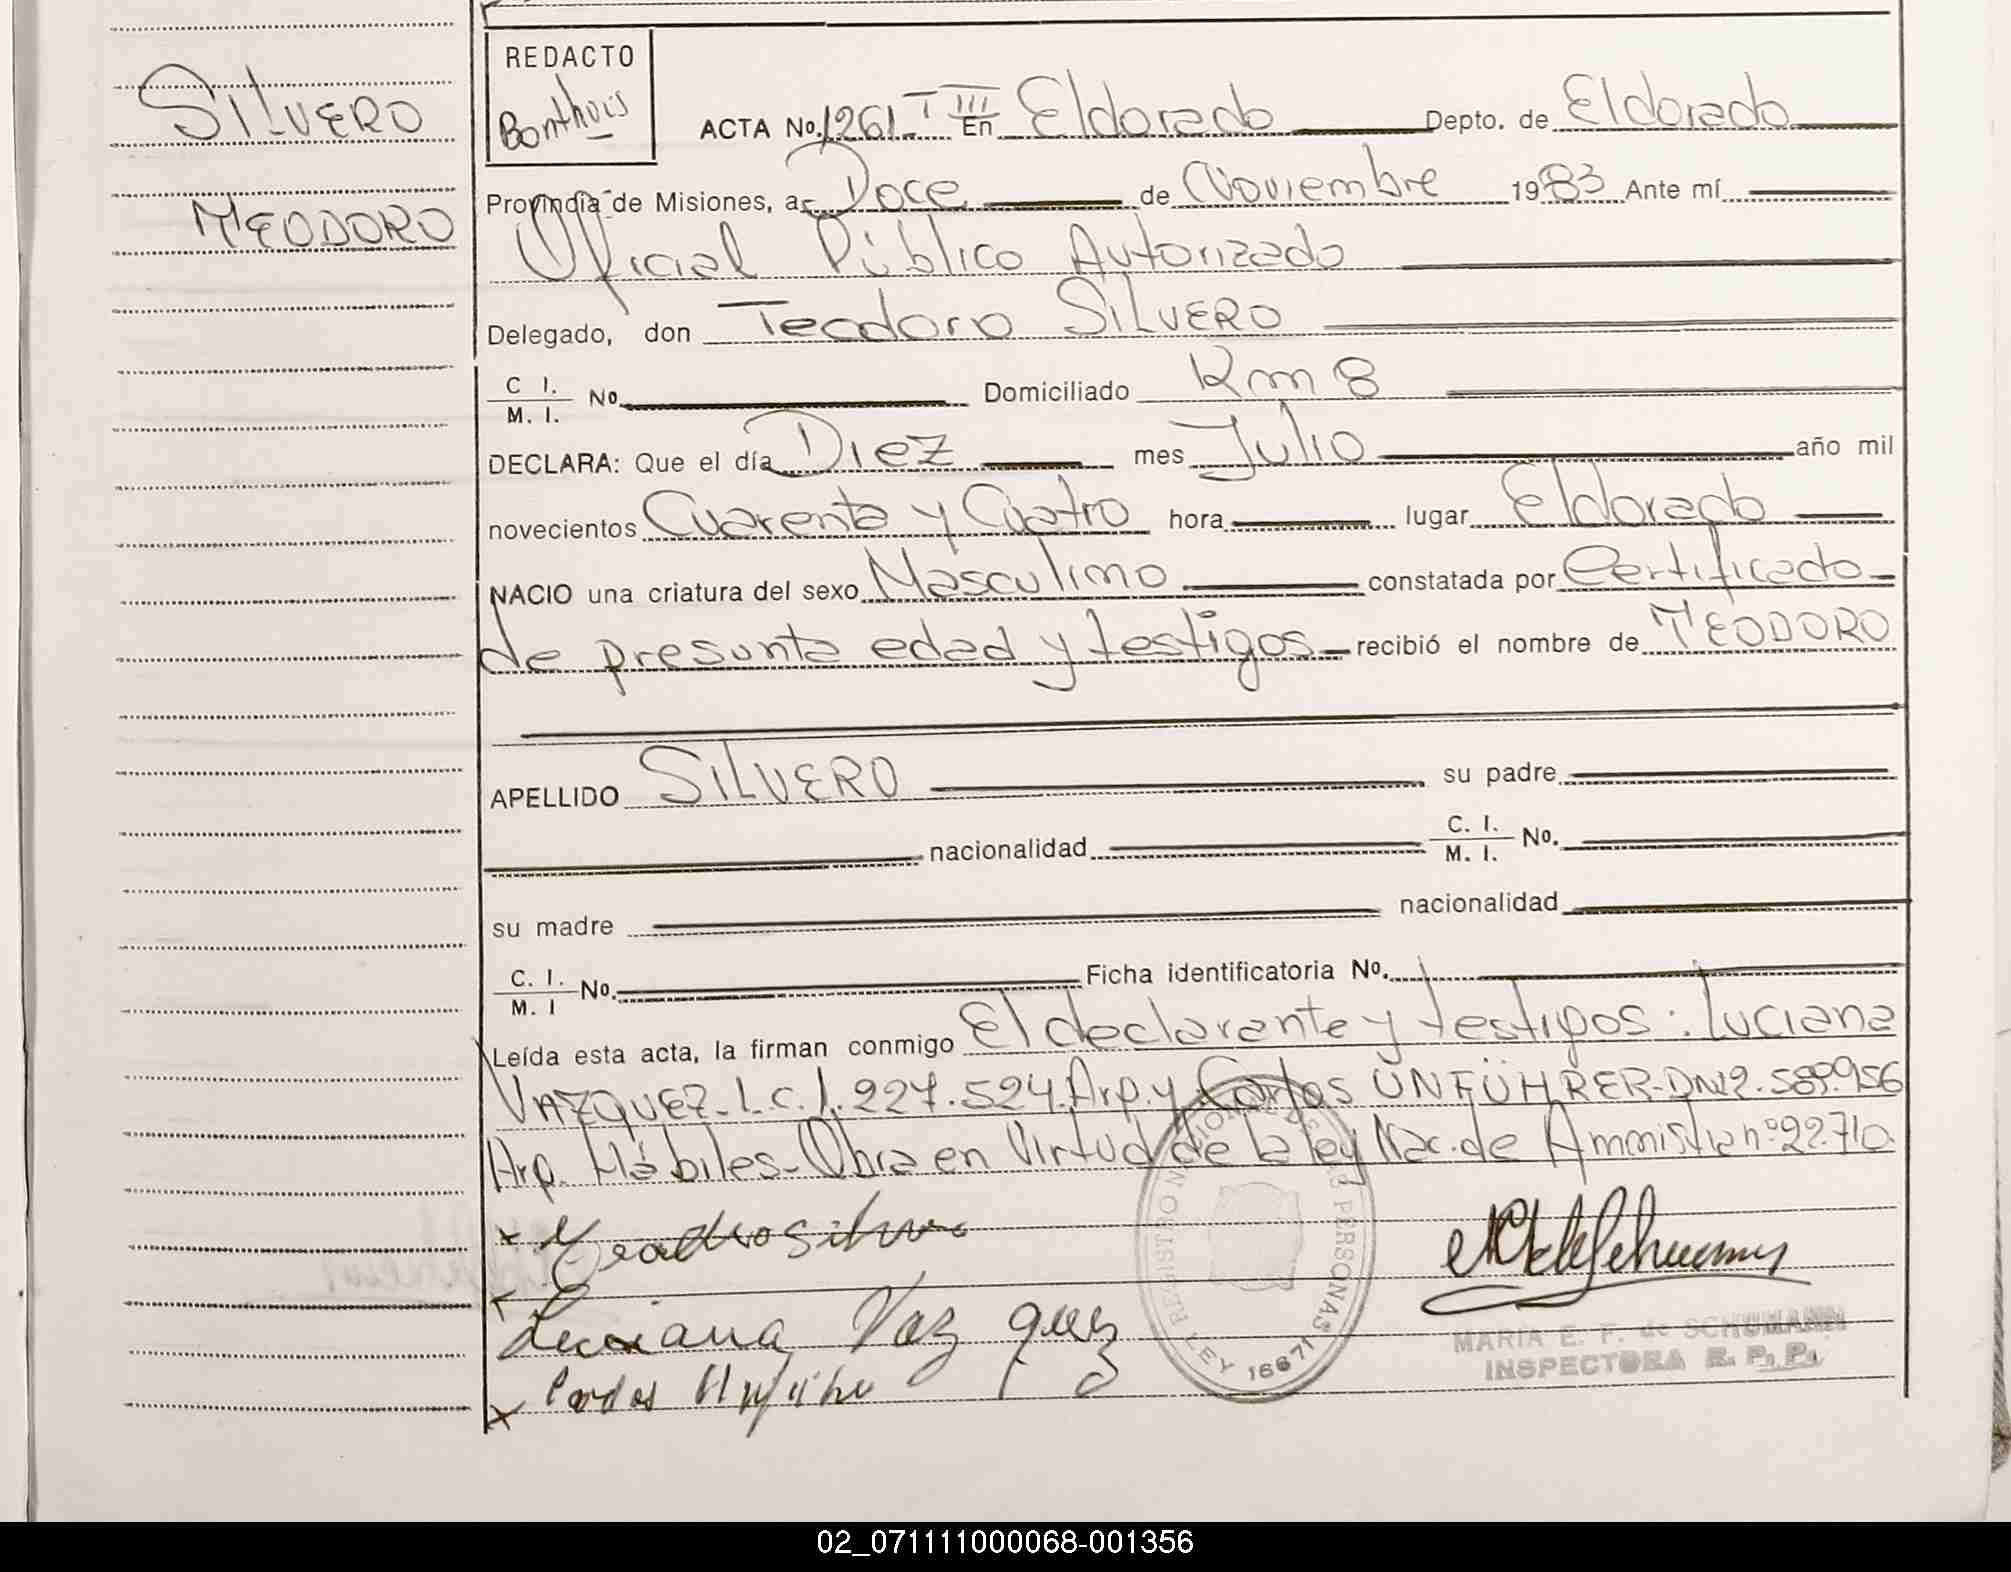 SILVERO
TEODORO
REDACTO
Bonthuis
ACTA No. 1261 T III En Eldorado Depto. de Eldorado
Provincia de Misiones, a Doce de Noviembre 1983 Ante mí
Oficial Público Autorizado
Delegado, don Teodoro SILVERO
C I. / M. I. No Domiciliado Km 8
DECLARA: Que el día Diez mes Julio año mil
novecientos Cuarenta y Cuatro hora lugar Eldorado
NACIO una criatura del sexo Masculino constatada por Certificado
de presunta edad y testigos recibió el nombre de TEODORO
APELLIDO SILVERO su padre
nacionalidad C. I. / M. I. No.
su madre nacionalidad
C. I. / M. I No. Ficha identificatoria No.
Leída esta acta, la firman conmigo El declarante y testigos: Luciana
VAZQUEZ-L.C.1.227.524.Arp.y Carlos UNFÜHRER-DNI2.589.956
Arp. Hábiles-Obra en Virtud de la ley Nac. de Ammistia nº 22.710
x Teodoro Silvero
Luciana Vaz quez
x Carlos
REGISTRO PERSONAS LEY 16671
MARIA E. F. de SCHUMANN
INSPECTORA R. P. P.
02_071111000068-001356